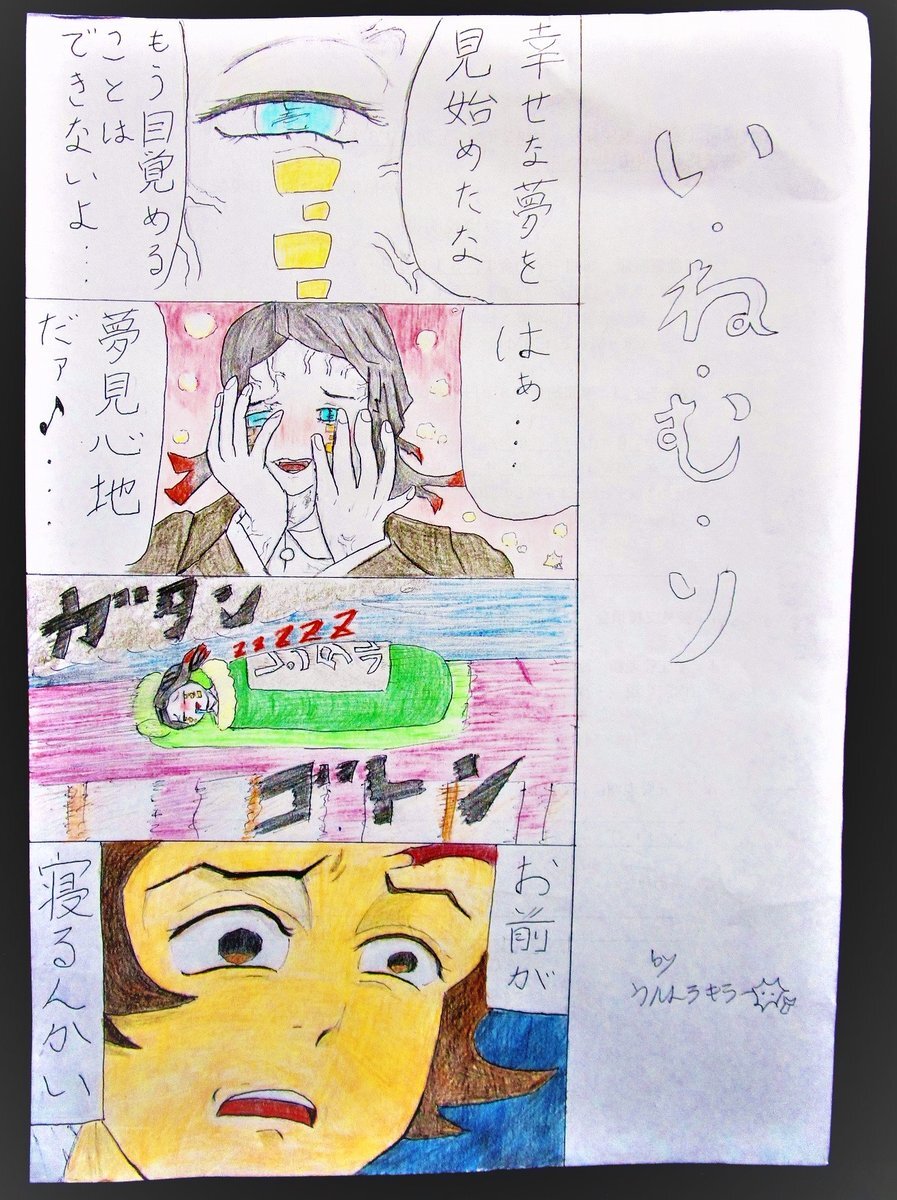 い・ね・む・り
幸せな夢を
見始めたな
もう目覚める
ことは
できないよ・・・
はぁ・・・
夢見心地
だァ♪・・・・
ガタン
zzzzz
ゴトン
お前が
寝るんかい
by
ウルトラキラー